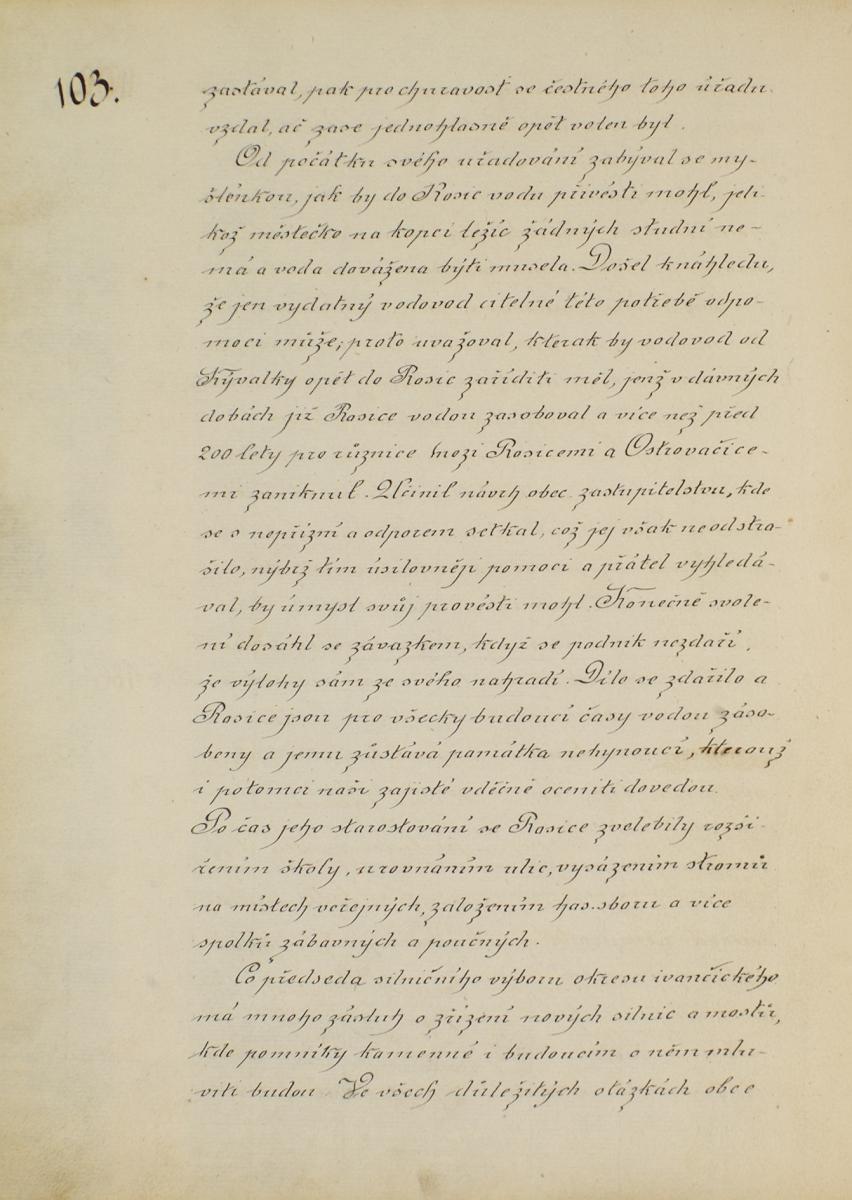 103.
zastával, pak pro churavost se čestného toho úřadu
vzdal, ač zase jednohlasně opět volen byl.
Od počátku svého uřadování zabýval se my-
šlénkou, jak by do Rosic vodu přivésti mohl, jeli-
kož městečko na kopci ležíc žádných studní ne-
má a voda dovážena býti musela. Došel k náhledu,
že jen vydatný vodovod citelné této potřebě odpo-
moci může; proto uvažoval, kterak by vodovod od
Kývalky opět do Rosic zaříditi měl, jenž v dávných
dobách již Rosice vodou zasoboval a více než před
200 lety pro různice mezi Rosicemi a Ostrovačice-
mi zaniknul. Učinil návrh obec. zastupitelstvu, kde
se s nepřízní a odporem setkal, což jej však neodstra-
šilo, nýbrž tím úsilovněji pomoci a přátel vyhledá-
val, by úmysl svůj provésti mohl. Konečně svole-
ní dosáhl se závazkem, když se podnik nezdaří,
že výlohy sám ze svého nahradí. Dílo se zdařilo a
Rosice jsou pro všecky budoucí časy vodou záso-
beny a jemu zůstává památka nehynoucí, kterouž
i potomci naši zajisté vděčně oceniti dovedou.
Po čas jeho starostování se Rosice zvelebily rozší-
řením školy, urovnáním ulic, vysázením stromů
na místech veřejných, založením has. sboru a více
spolků zábavných a poučných.
Co předseda silničního výboru okresu ivančického
má mnoho zásluh o zřízení nových silnic a mostů,
kde pomníky kamenné i budoucím o něm mlu-
viti budou. Ve všech důležitých otázkách obce